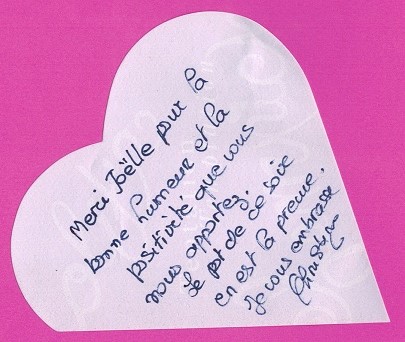 Merci Joëlle pour la
bonne humeur et la
positivité que vous
nous apportez.
Le pot de ce soir
en est la preuve.
Je vous embrasse
Christyne